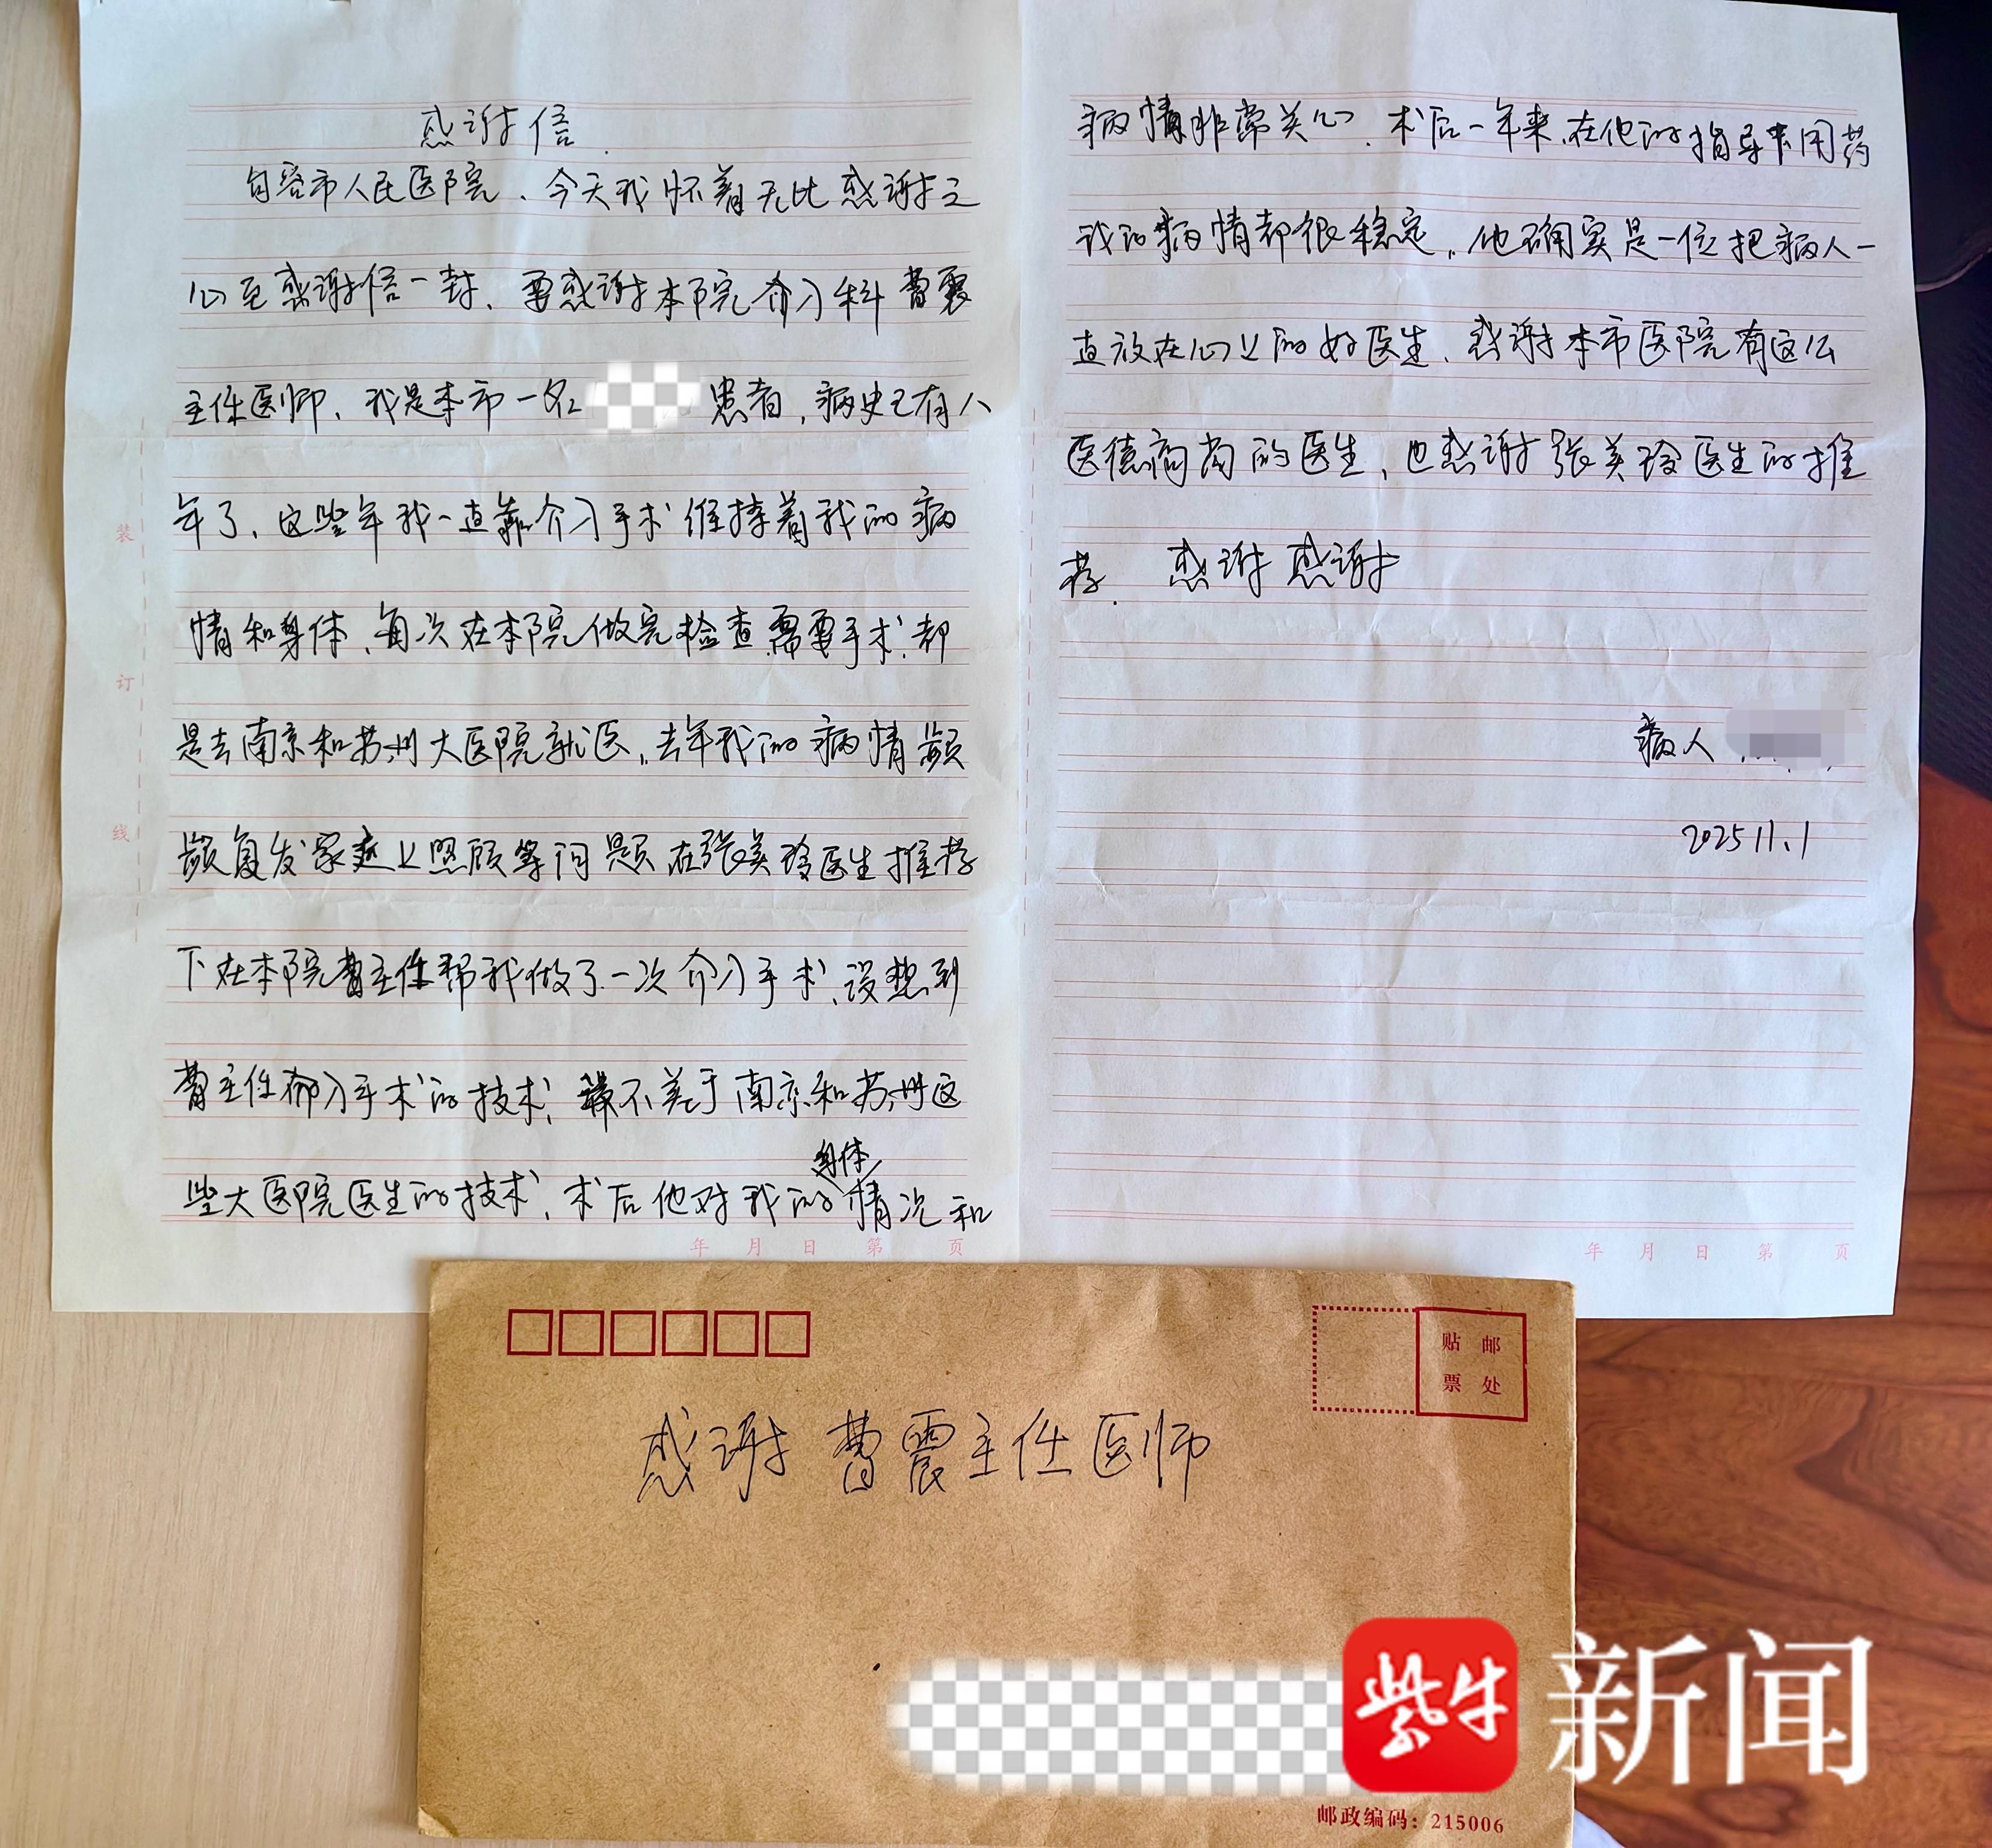 感谢信
句容市人民医院、今天我怀着无比感谢之
心写感谢信一封、要感谢本院介入科曹震
主任医师、我是本市一名 患者，病史已有八
年了、这些年我一直靠介入手术维持着我的病
情和身体、每次在本院做完检查需要手术、都
是去南京和苏州大医院就医，去年我的病情频
频复发家庭上照顾等问题在张美玲医生推荐
下在本院曹主任帮我做了一次介入手术、没想到
曹主任介入手术的技术、不差于南京和苏州这
些大医院医生的技术、术后他对我的身体情况和
装
订
线
年 月 日 第 页
病情非常关心、术后一年来、在他的指导下用药
我的病情都很稳定，他确实是一位把病人一
直放在心上的好医生、感谢本市医院有这么
医德高尚的医生、也感谢张美玲医生的推
荐. 感谢感谢
病人
2025 11.1
年 月 日 第 页
贴 邮
票 处
感谢曹震主任医师
紫牛 新闻
邮政编码：215006